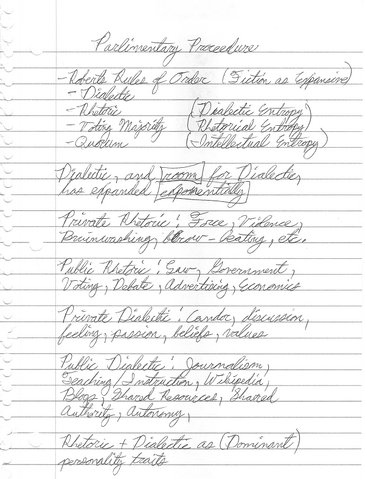 Parlimentary Proceedure
- Roberts Rules of Order (Fiction as Expansive)
- Dialectic
- Rhetoric (Dialectic Entropy)
- Voting Majority (Rhetorical Entropy)
- Quorum (Intellectual Entropy)
Dialectic, and room for Dialectic,
has expanded exponentially
Private Rhetoric: Force, Violence,
Brainwashing, Brow-beating, etc.
Public Rhetoric: Law, Government,
Voting, Debate, Advertising, Economics
Private Dialectic: Candor, discussion,
feeling, passion, beliefs, values
Public Dialectic: Journalism,
Teaching/Instruction, Wikipedia,
Blogs, Shared Resources, Shared
Authority, Autonomy,
Rhetoric + Dialectic as (Dominant)
personality traits